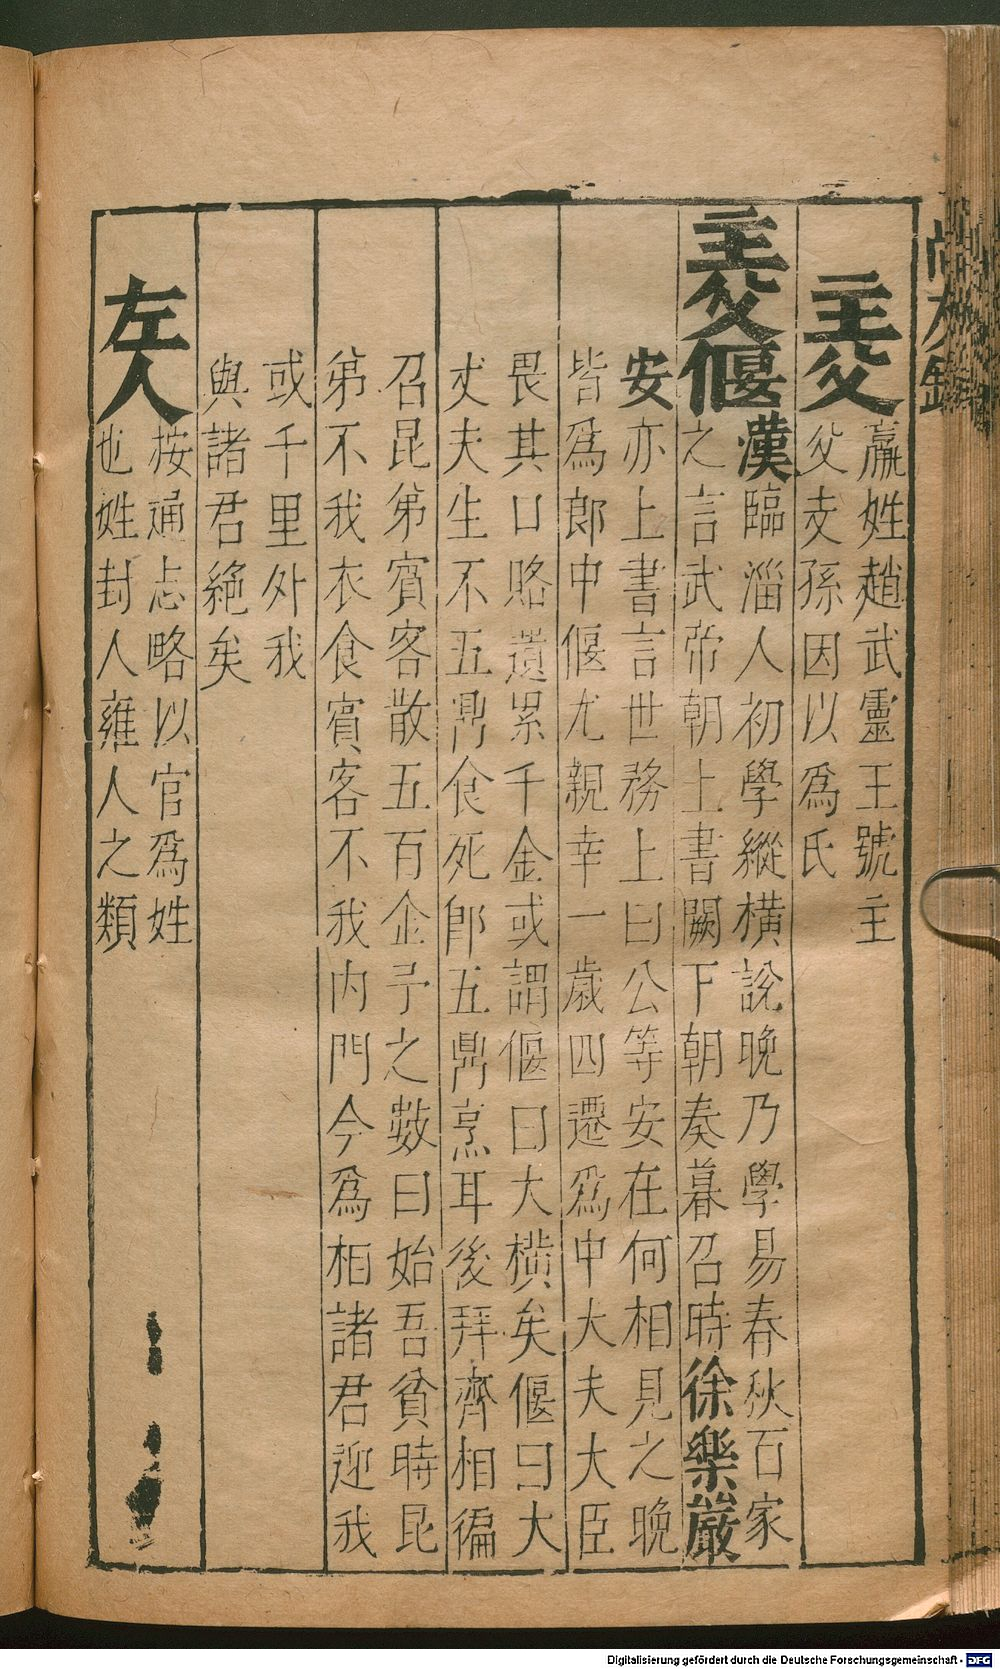 主父
嬴姓趙武靈王號主
父支孫因以爲氏
主父偃
漢臨淄人初學縱横說晚乃學易春秋石家
之言武帝朝上書闕下朝奏暮召時徐樂嚴
安亦上書言世務上曰公等安在何相見之晚
皆爲郎中偃尤親幸一歲四遷爲中大夫大臣
畏其口賂遺累千金或謂偃曰大横矣偃曰大
丈夫生不五鼎食死即五鼎烹耳後拜齊相徧
召昆弟賓客散五百金予之數曰始吾貧時昆
弟不我衣食賓客不我内門今爲相諸君迎我
或千里外我
與諸君絶矣
左人
按通志略以官爲姓
也姓封人雍人之類
Digitalisierung gefördert durch die Deutsche Forschungsgemeinschaft - DFG